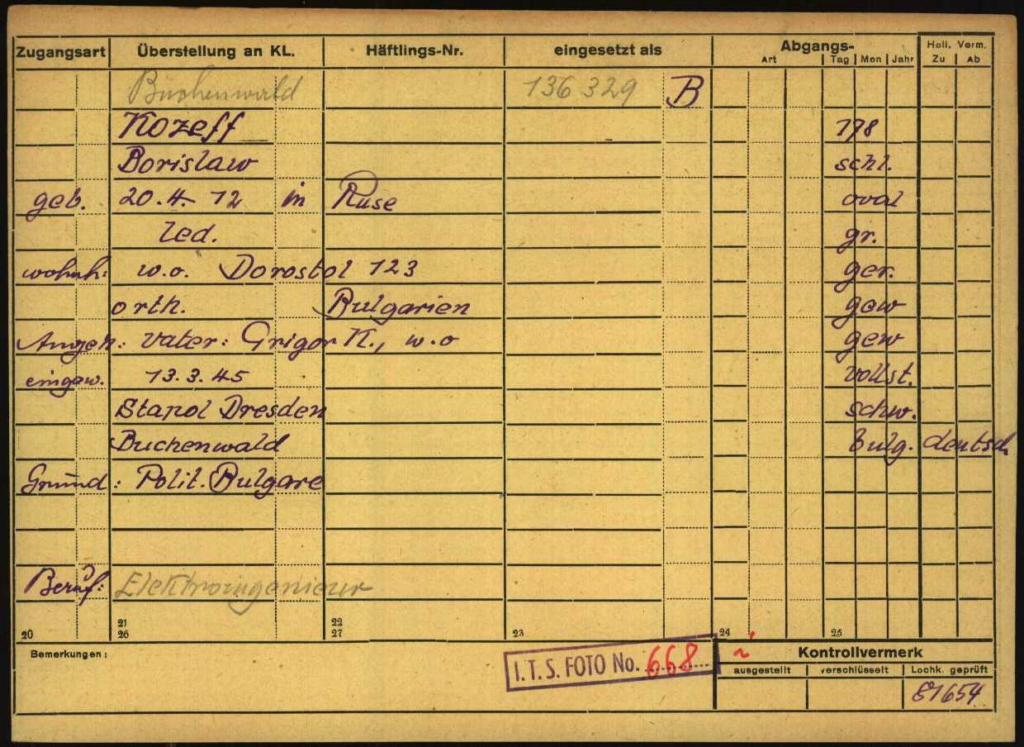 Zugangsart Überstellung an KL. Häftlings-Nr. eingesetzt als Abgangs- Holl. Verm.
Art Tag Mon Jahr Zu Ab
Buchenwald 136329 B
Kozeff 178
Borislaw schl.
geb. 20.4.12 in Ruse oval
led. gr.
wohnh: w.o. Dorostol 123 ger.
orth. Bulgarien gew
Angeh: Vater: Grigor K., w.o gew
eingew. 13.3.45 vollst.
Stapol Dresden schw.
Buchenwald Bulg. deutsch
Grund: Polit. Bulgare
Beruf: Elektroingenieur
20 21 22 23 24 25
26 27
Bemerkungen: I.T.S. FOTO No. 668 Kontrollvermerk
ausgestellt verschlüsselt Lochk. geprüft